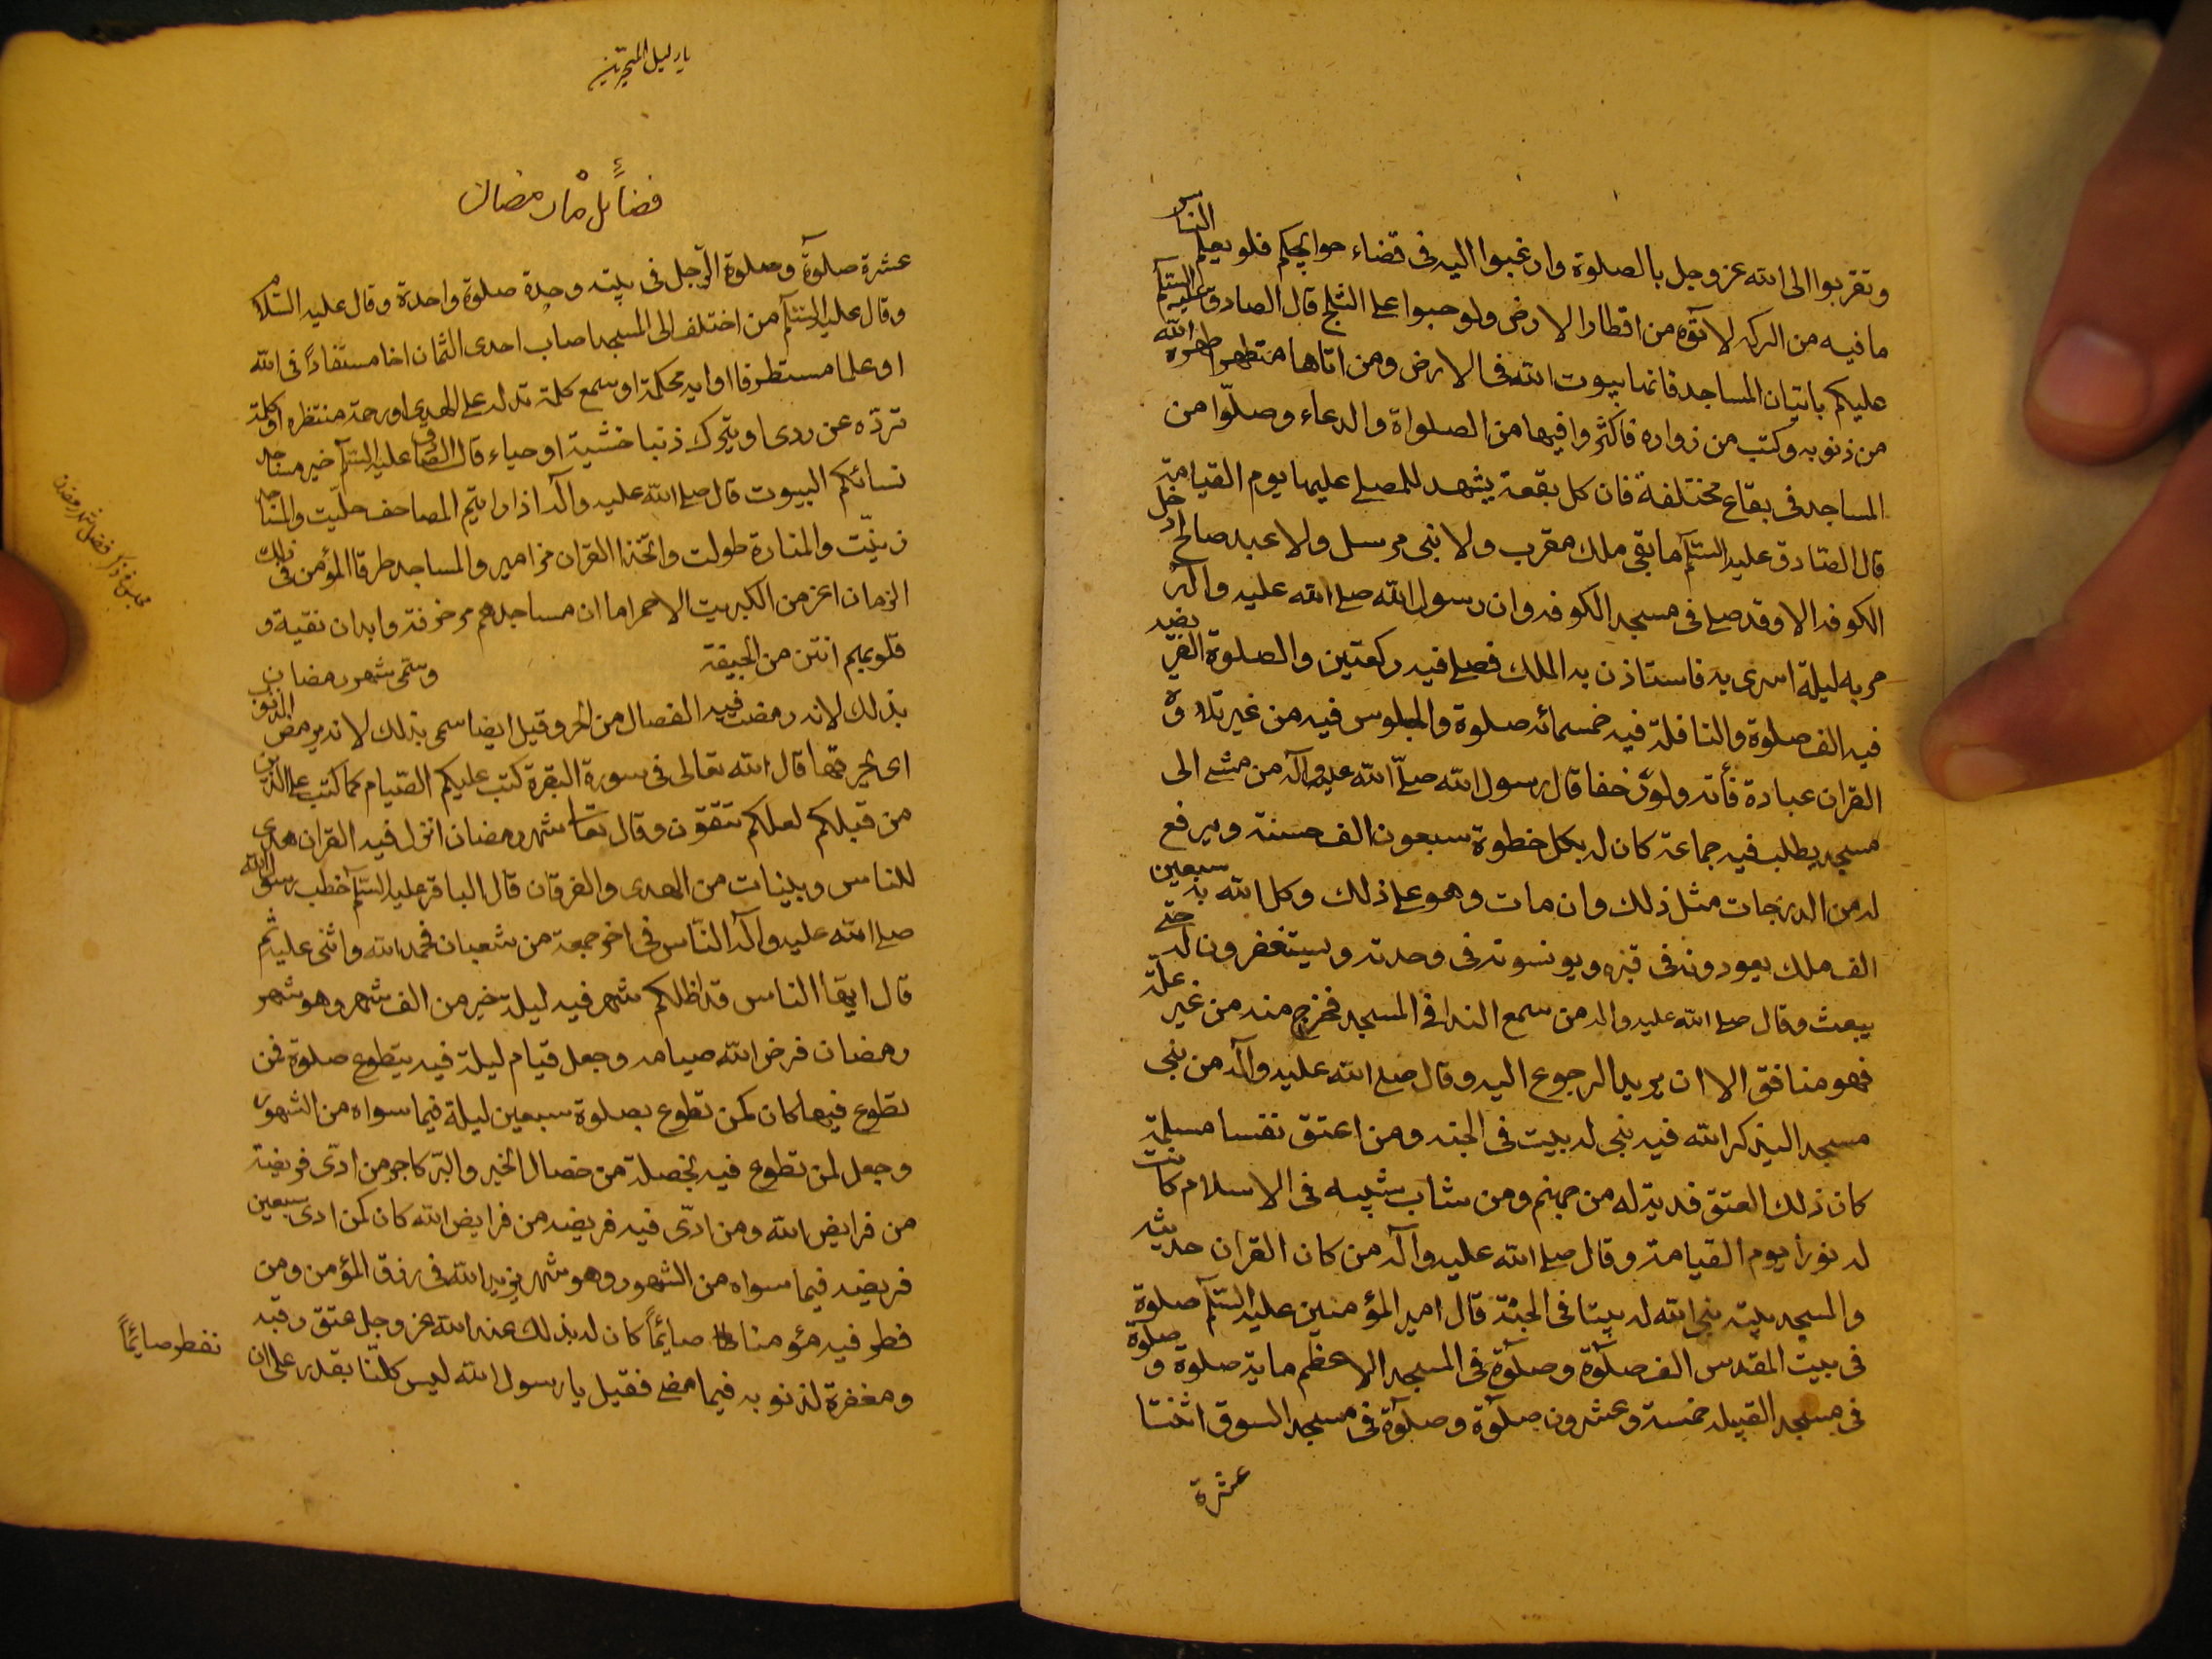 وتقربوا الى الله عز وجل بالصلوة وارغبوا اليه فى قضاء حوائجكم فلو يعلم الناس
ما فيه من البركه لاتوه من اقطار الارض ولو حبوا على الثلج قال الصادق عليه السلم
عليكم باتيان المساجد فانها بيوت الله فى الارض ومن اتاها متطهرا طهره الله
من ذنوبه وكتب من زواره فاكثروا فيها من الصلواة والدعاء وصلّوا من
المساجد فى بقاع مختلفة فان كل بقعة يشهد للمصلى عليها يوم القيامة
قال الصّادق عليه السلم ما بقى ملك مقرب ولا نبى مرسل ولا عبد صالح دخل
الكوفه الا وقد صلى فى مسجد الكوفه وان رسول الله صلى الله عليه واله
مر به ليلة اسرى به فاستاذن به الملك فصلى فيه ركعتين والصلوة الفريضه
فيه الف صلوة والنافلة فيه خمسمائه صلوة والجلوس فيه من غير تلاوة
القران عبادة فأته ولو زحفا قال رسول الله صلّى الله عليه وآله من مشى الى
مسجد يطلب فيه جماعة كان له بكل خطوة سبعون الف حسنة ويرفع
له من الدرجات مثل ذلك وان مات وهو على ذلك وكل الله به سبعين
الف ملك يعودونه فى قبره ويونسونه فى وحدته ويستغفرون له حتى
يبعث وقال صلى الله عليه واله من سمع الندا فى المسجد فخرج منه من غير علّة
فهو منافق الا ان يريد الرجوع اليه وقال صلى الله عليه وآله من بنى
مسجد اليذكر الله فيه بنى له بيت فى الجنه ومن اعتق نفسا مسلمة
كان ذلك العتق فدية له من جهنم ومن شاب شيبه فى الاسلام كانت
له نورا يوم القيامة وقال صلى الله عليه وآله من كان القران حديثه
والمسجد بيته بنى الله له بيتا فى الجنّة قال امير المؤمنين عليه السلم صلوة
فى بيت المقدس الف صلوة وصلوة فى المسجد الاعظم ماية صلوة و صلوة
فى مسجد القبيله خمسة وعشرون صلوة وصلوة فى مسجد السوق اثنتا
عشرة
يا دليل المتحيرين
فضائل ماه رمضان
عشرة صلوة وصلوة الرّجل فى بيته وحده صلوة واحدة وقال عليه السّلام
وقال عليه السلم من اختلف الى المسجد اصاب احدى الثمان اخا مستفاداً فى الله
او علما مستطرفا او اية محكمة او سمع كلمة تدله على الهدى او رحمة منتظره او كلمة
تردّه عن ردى او يترك ذنبا خشية او حياء قال الصادق عليه السلم خير مساجد
نسائكم البيوت قال صلى الله عليه وآله اذا رايتم المصاحف حلّيت والمساجد
زينّت والمنارة طولت واتخذ القران مزامير والمساجد طرقا المؤمن فى ذلك
الزمان اعز من الكبريت الاحمر اما ان مساجدهم مزخرفة وابدان نقية و
قلوبهم انتن من الجيفة وسمّى شهر رمضان
بذلك لانه رمضت فيه الفصال من الحر وقيل ايضا سمى بذلك لانه يرمض الذنوب
اى يحرقها قال الله تعالى فى سورة البقرة كتب عليكم الصّيام كما كتب على الذين
من قبلكم لعلكم تتقون وقال تعا شهر رمضان انزل فيه القران هدى
للناس وبينات من الهدى والفرقان قال الباقر عليه السّلم خطب رسول الله
صلى الله عليه وآله النّاس فى اخر جمعة من شعبان فحمد الله واثنى عليه ثم
قال ايهّا الناس قد اظلكم شهر فيه ليلة خير من الف شهر وهو شهر
رمضان فرض الله صيامه وجعل قيام ليلة فيه يتطوع صلوة فمن
تطوع فيها كان كمن تطوع بصلوة سبعين ليلة فيما سواه من الشهور
وجعل لمن تطوع فيه بخصلة من خصال الخير والبّر كاجر من ادّى فريضة
من فرايض الله ومن ادّى فيه فريضه من فرايض الله كان كمن ادى سبعين
فريضه فيما سواه من الشهور وهو شهر يزيد الله فى رزق المؤمن ومن
فطر فيه مؤمنا صائمًا كان له بذلك عند الله عز وجل عتق رقبه
ومغفرة لذنوبه فيما مضى فقيل يا رسول الله ليس كلّنا يقدر على ان
نفطر صائمًا
مجلس فى ذكر فضل شهر رمضان